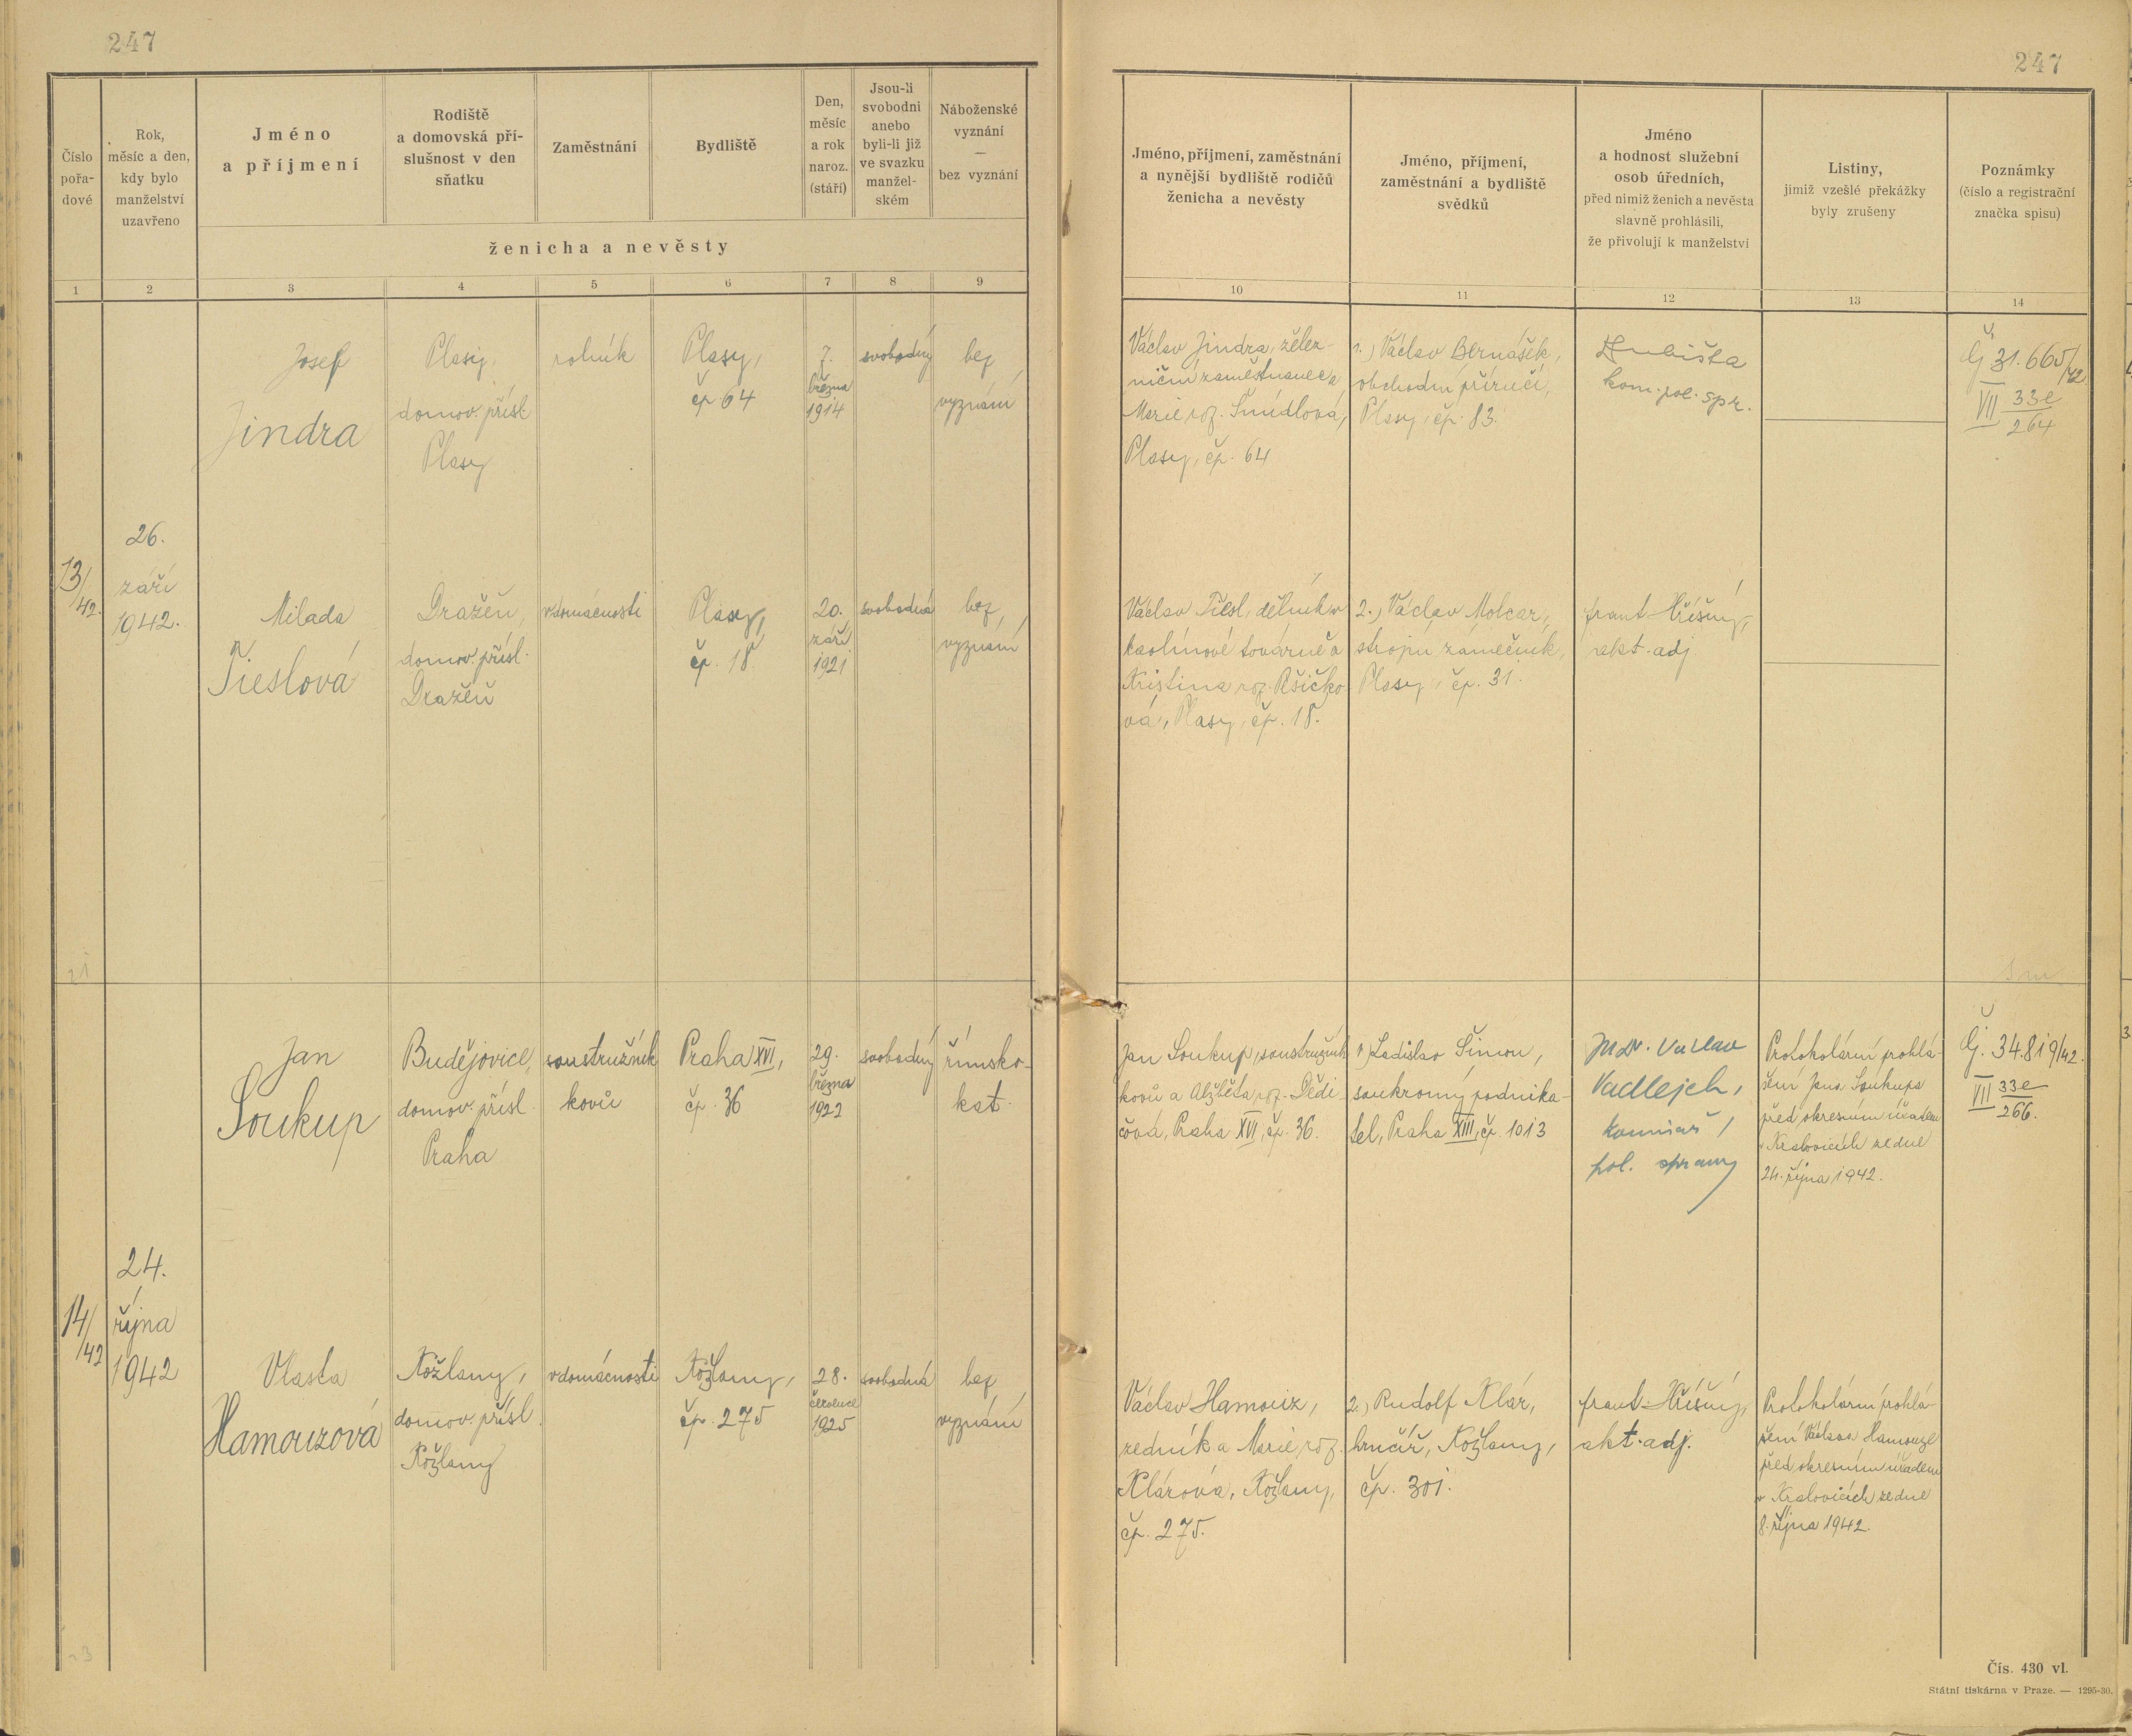 247
247
Číslo pořa- dové
Rok, měsíc a den, kdy bylo manželství uzavřeno
Jméno a příjmení
Rodiště a domovská pří- slušnost v den sňatku
Zaměstnání
Bydliště
Den, měsíc a rok naroz. (stáří)
Jsou-li svobodni anebo byli-li již ve svazku manžel- ském
Náboženské vyznání — bez vyznání
ženicha a nevěsty
Jméno, příjmení, zaměstnání a nynější bydliště rodičů ženicha a nevěsty
Jméno, příjmení, zaměstnání a bydliště svědků
Jméno a hodnost služební osob úředních, před nimiž ženich a nevěsta slavně prohlásili, že přivolují k manželství
Listiny, jimiž vzešlé překážky byly zrušeny
Poznámky (číslo a registrační značka spisu)
1 2 3 4 5 6 7 8 9 10 11 12 13 14
13/42.
26.
září
1942.
Josef
Jindra
Plasy,
domov. přísl.
Plasy
rolník
Plasy,
čp 64
7.
března
1914
svobodný
bez
vyznání
Václav Jindra, želez-
niční zaměstnanec a
Marie roz. Šmídlová,
Plasy, čp. 64
1.) Václav Bernášek,
obchodní příručí,
Plasy, čp. 83.
kom. pol. spr.
Čj. 31.665/42
VII 33e
264
Milada
Tieslová
Dražeň,
domov. přísl.
Dražeň
v domácnosti
Plasy,
čp. 18.
20.
září
1921
svobodná
bez
vyznání
Václav Tiesl, dělník v
kaolinové továrně a
Kristina roz. Ršičko-
vá, Plasy, čp. 18.
2.) Václav Molcar,
strojní zámečník,
Plasy, čp. 31.
frant. Hříšný,
akt. adj.
14/42
24.
října
1942
Jan
Soukup
Budějovice,
domov. přísl.
Praha
soustružník
kovů
Praha XVI,
čp. 36
29.
března
1922
svobodný
římsko-
kat.
Jan Soukup, soustružník
kovů a Alžběta roz. Dědi-
čová, Praha XVI, čp. 36.
1.) Ladislav Šimon,
soukromý podnika-
tel, Praha XIII, čp. 1013
JUDr. Václav
Vadlejch,
komisař
pol. správy
Protokolární prohlá-
šení Jana Soukupa
před okresním úřadem
v Kralovicích ze dne
24. října 1942.
Čj. 34.819/42.
VII 33e
266.
Vlasta
Hamouzová
Kožlany,
domov. přísl.
Kožlany
v domácnosti
Kožlany,
čp. 275
28.
července
1925
svobodná
bez
vyznání
Václav Hamouz,
zedník a Marie roz.
Klárová, Kožlany,
čp. 275.
2.) Rudolf Klár,
hrnčíř, Kožlany,
čp. 301.
frant. Hříšný,
akt. adj.
Protokolární prohlá-
šení Václava Hamouze
před okresním úřadem
v Kralovicích ze dne
8. října 1942.
Čís. 430 vl.
Státní tiskárna v Praze. — 1295-30.